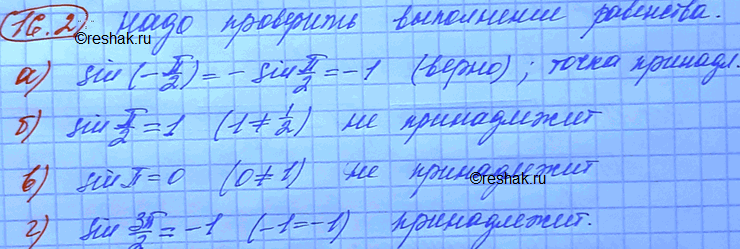 16.2 Надо проверить выполнение равенства.
©reshak.ru
а) sin(-π/2) = - sin π/2 = -1 (верно); точка принадл.
б) sin π/2 = 1 (1 ≠ 1/2) не принадлежит
©reshak.ru
в) sin π = 0 (0 ≠ 1) не принадлежит
©reshak.ru
г) sin 3π/2 = -1 (-1 = -1) принадлежит.